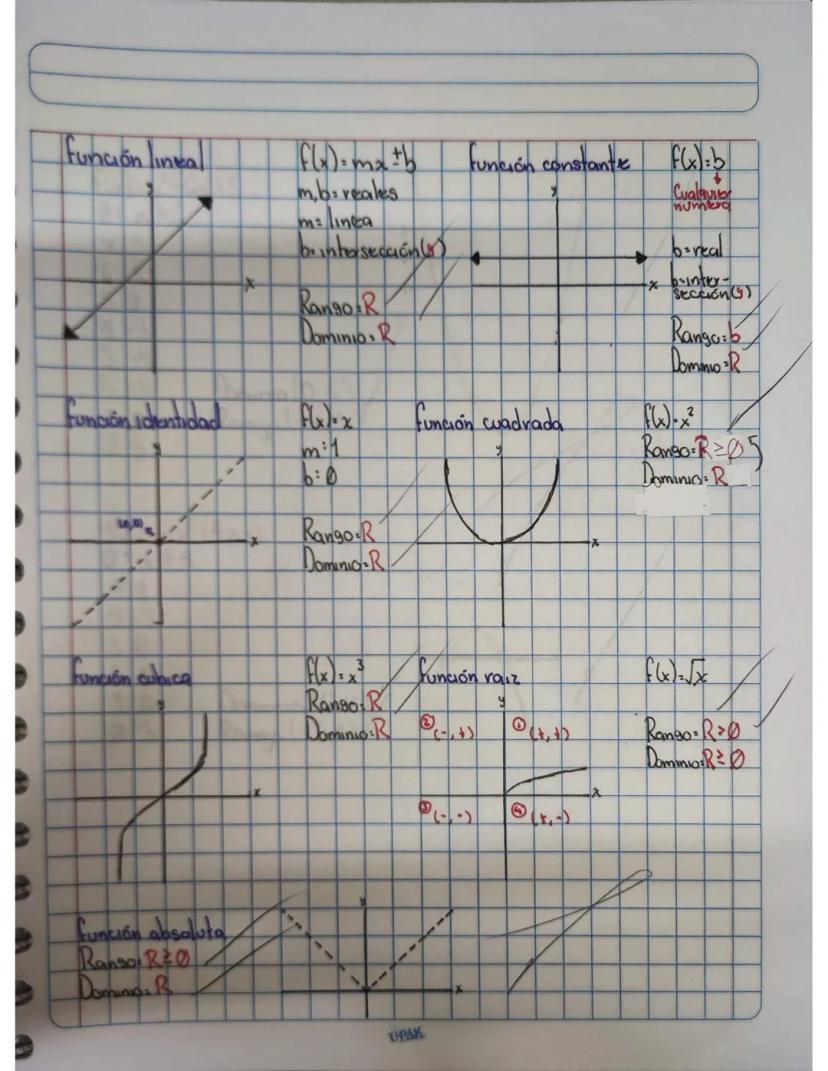 función lineal
f(x)=mx±b
m,b=reales
m=linea
b=intersección(y)
Rango=R
Dominio=R
y
x
función constante
f(x)=b
Cualquier
numero
b=real
b=inter-
sección(y)
Rango=b
Dominio=R
y
x
función identidad
f(x)=x
m=1
b=Ø
Rango=R
Dominio=R
y
(0,0)
x
función cuadrada
f(x)=x²
Rango=R≥Ø
Dominio=R
y
x
función cubica
f(x)=x³
Rango=R
Dominio=R
y
x
función raiz
f(x)=√x
Rango=R≥Ø
Dominio=R≥Ø
y
② (-,+) ① (+,+)
x
③ (-,-) ④ (+,-)
función absoluta
Rango=R≥Ø
Dominio=R
y
x
UPAK